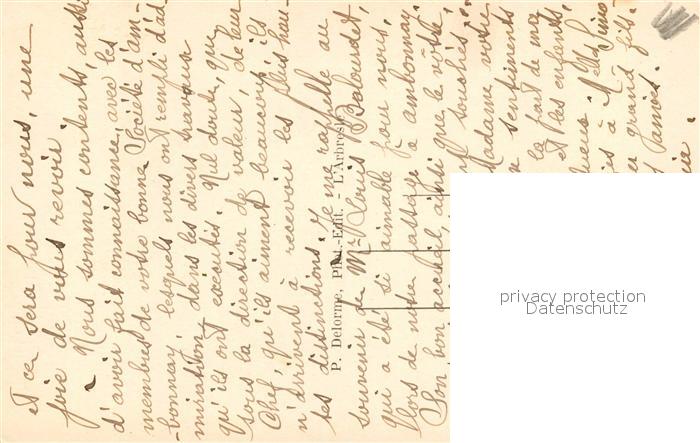 et ce sera pour nous, une
joie de vous revoir.
Nous sommes contents, aussi
d'avoir fait connaissance, avec les
membres de votre bonne Société d'am-
bonnay, lesquels nous ont rempli d'ad
miration, dans les divers travaux
qu'ils ont exécutés. Nul doute, que
sous la direction de valeur, de leur
Chef, qu'ils aiment beaucoup, ils
n'arrivent à recevoir les plus hau-
tes distinctions. Je me rappelle au
P. Delorme, Phot.-Edit. - L'Arbresle
souvenir de Mr Louis Beloudet,
qui a été si aimable pour nous,
lors de notre passage à ambonnay.
Son bon accueil, ainsi que le vôtre,
oublié.
Madame votre
sentiments
la part de ma
et les enfants
à Melle Simo
grands fils.
amis.
privacy protection
Datenschutz